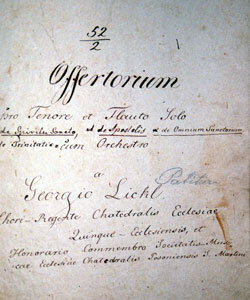 52
2
Offertorium
pro Tenore et Flauto Solo
de Apostolis et de Omnium Sanctorum
Cum Orchestro
a
Georgio Lickl
Chori-Regente Chatedralis Ecclesiae
Quinque-Ecclesiensis, et
Honorario Commembro Societatis Musi-
cae Ecclesiae Chatedralis Posoniensis S. Martini